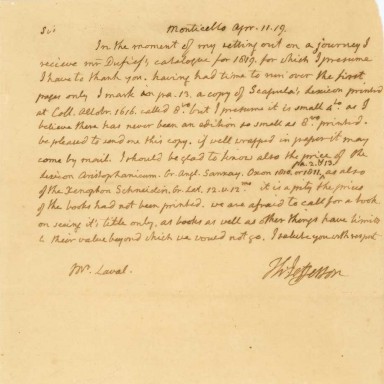 Sir Monticello Apr. 11. 19.
In the moment of my setting out on a journey I
recieve mr Dufief's catalogue for 1819. for which I presume
I have to thank you. having had time to run over the first
pages only I mark pa. 13. a copy of Scapula's lexicon printed
at Coll. Allobr. 1616. called 8vo but I presume it is small 4to. as I
believe there has never been an edition so small as 8vo printed.
be pleased to send me this copy. if well wrapped in paper it may
come by mail. I should be glad to know also the price of the
lexicon Aristophanicum. Gr. Angl. Sanxay. Oxon 1811. as also
of the Xenophon Schneideri. Gr. Lat. 12. v. 12mo it is a pity the prices
of the books had not been printed. we are afraid to call for a book
on seeing it's title only, as books as well as other things have limits
to their value beyond which we would not go. I salute you with respect
Th: Jefferson
Mr. Laval.